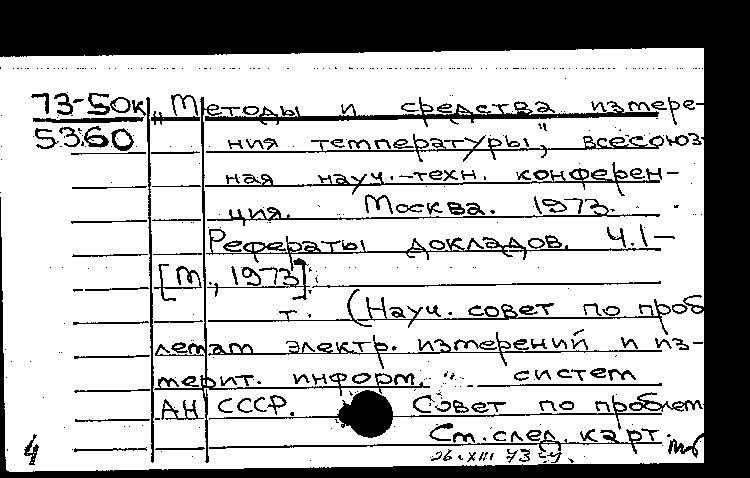 73-50к „Методы и средства измере-
5360 ния температуры", всесоюз-
ная науч.-техн. конферен-
ция. Москва. 1973.
Рефераты докладов. Ч.1-
[М., 1973]
т. (Науч. совет по проб
лемам электр. измерений и из-
мерит. информ. систем
АН СССР. Совет по проблем
См. след. карт.
4